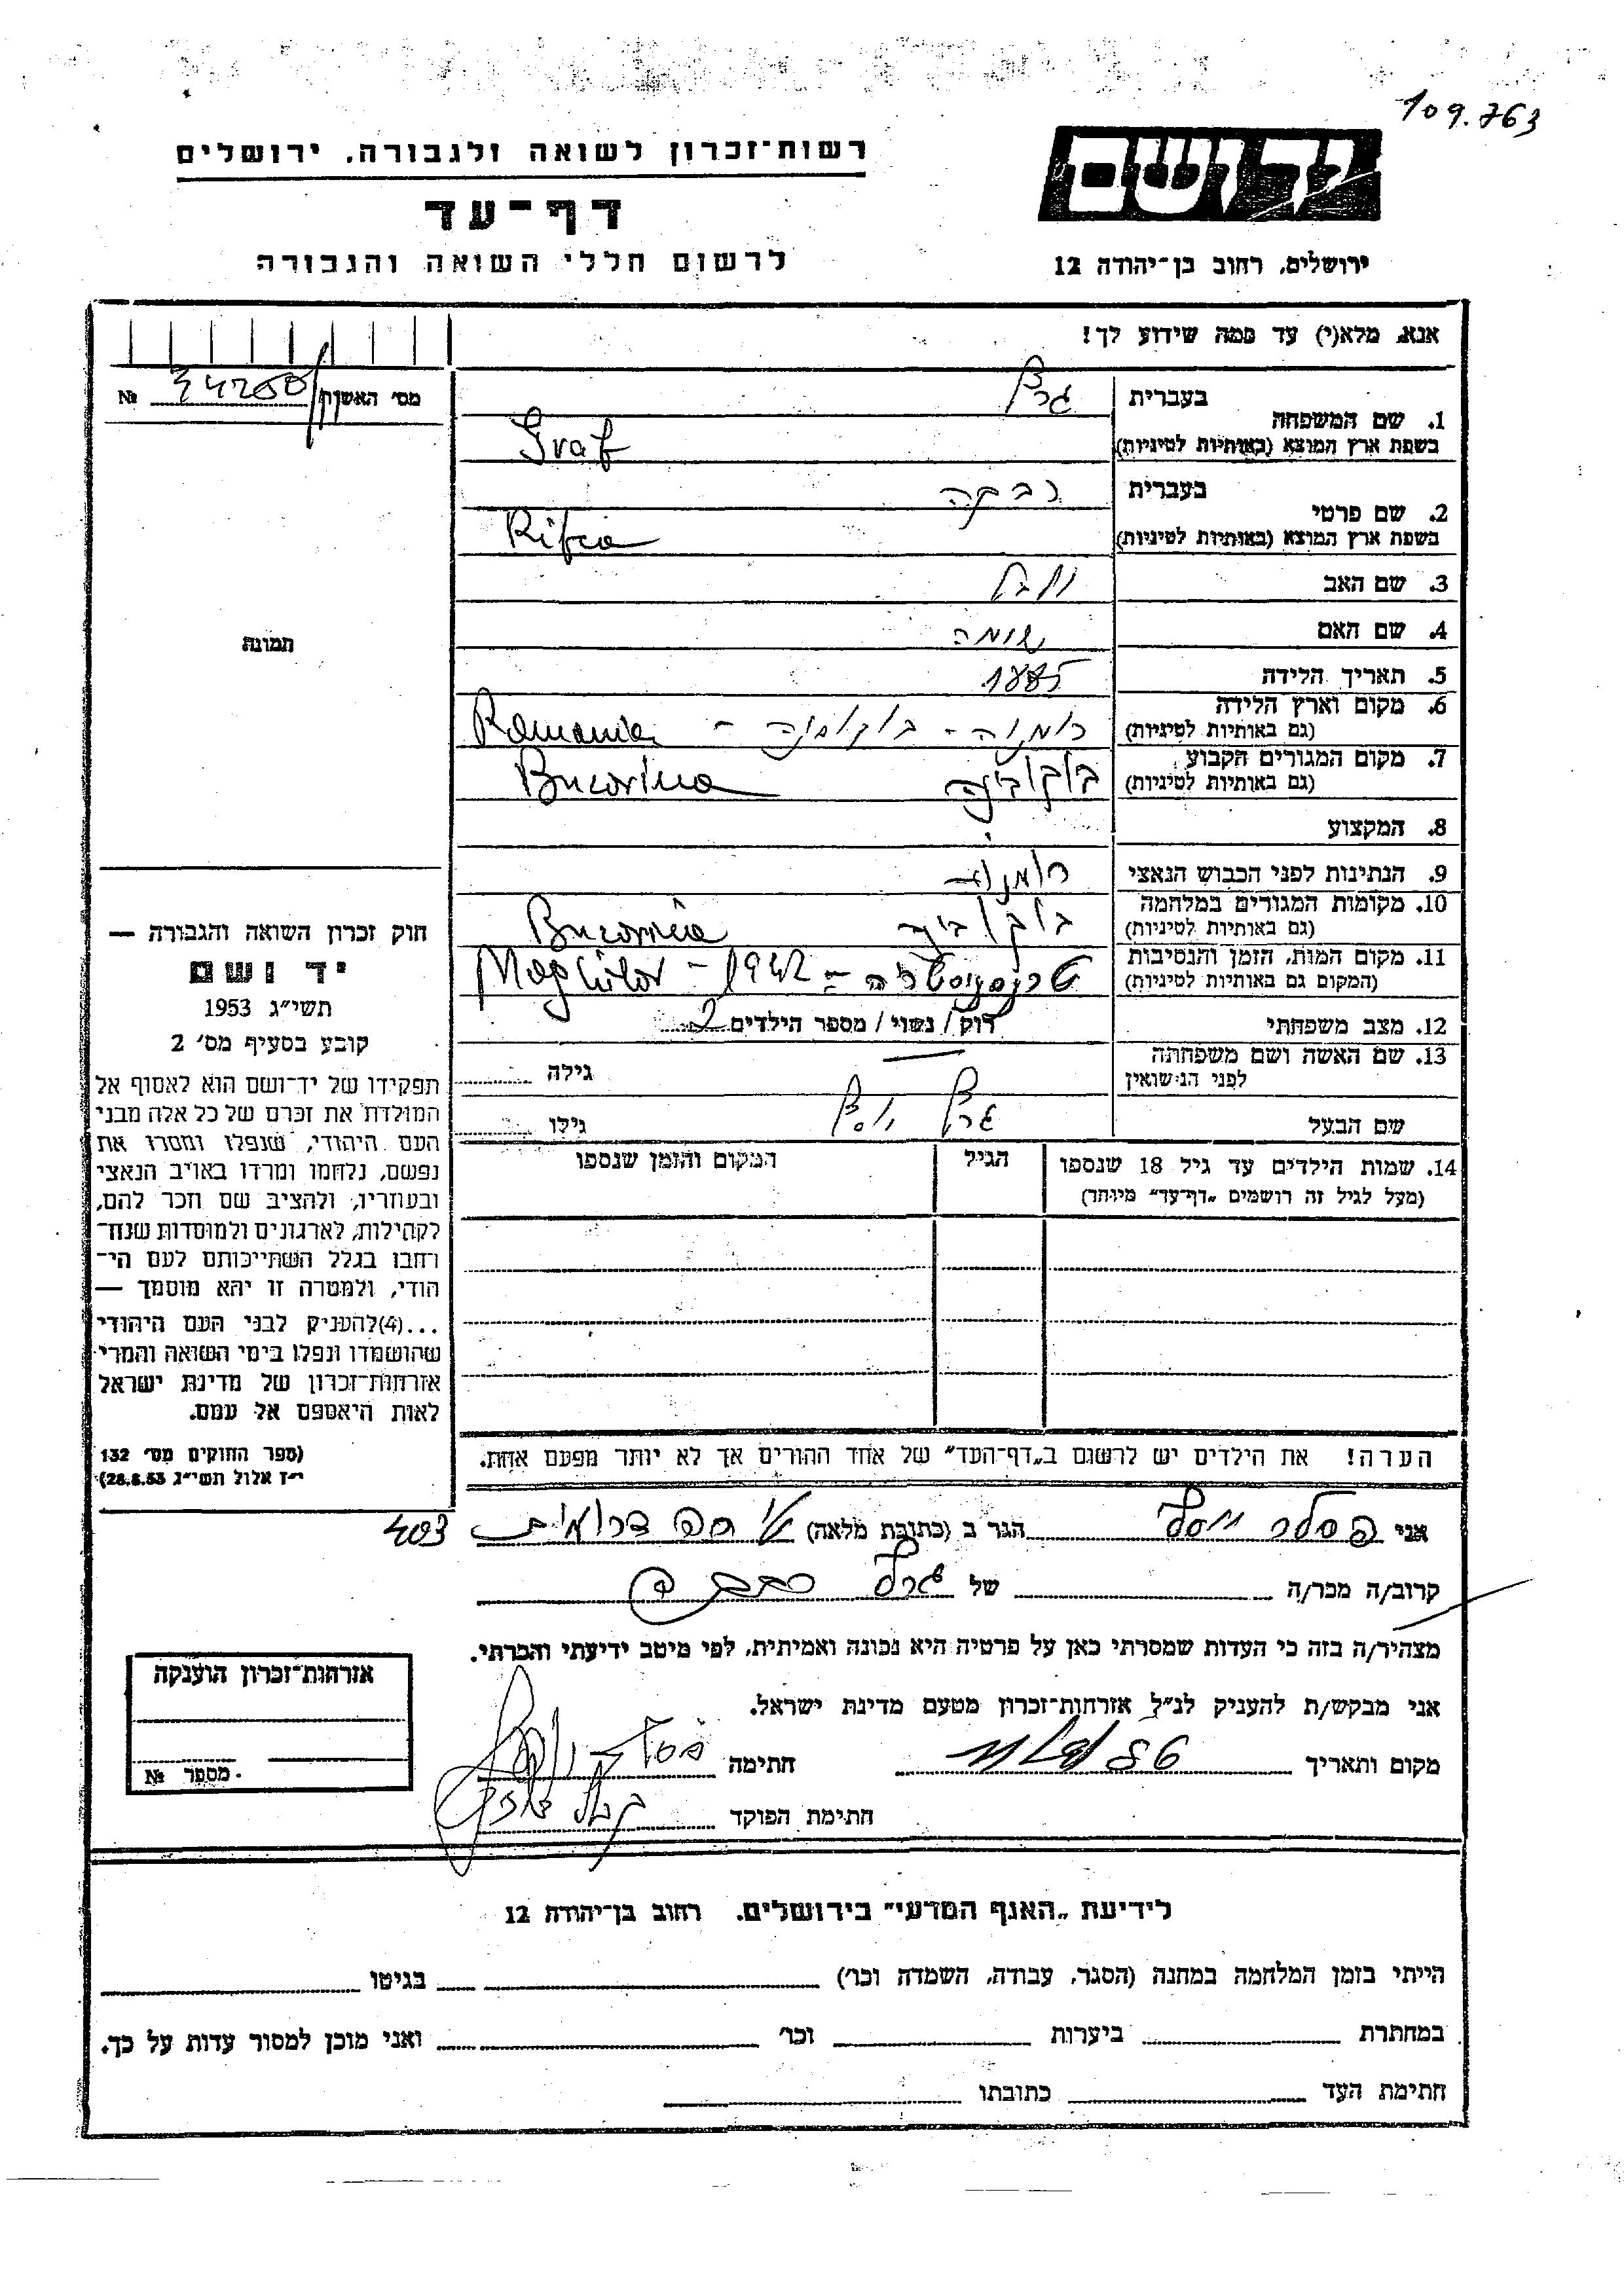 109.763
יד ושם
רשות־זכרון לשואה ולגבורה, ירושלים
דף־עד
לרשום חללי השואה והגבורה
ירושלים, רחוב בן־יהודה 12
אנא, מלא(י) עד כמה שידוע לך!
מס׳ האשה № 34200
בעברית גרף
1. שם המשפחה
בשפת ארץ המוצא (באותיות לטיניות) Graf
בעברית רבקה
2. שם פרטי
בשפת ארץ המוצא (באותיות לטיניות) Rifca
3. שם האב
4. שם האם
5. תאריך הלידה 1885
6. מקום וארץ הלידה רומניה - בוקובינה - Romania
(גם באותיות לטיניות)
7. מקום המגורים הקבוע בוקובינה Bucovina
(גם באותיות לטיניות)
8. המקצוע
9. הנתינות לפני הכבוש הנאצי רומנית
10. מקומות המגורים במלחמה בוקובינה Bucovina
(גם באותיות לטיניות)
11. מקום המות, הזמן והנסיבות טרנסניסטריה - 1942 - Moghilov
(המקום גם באותיות לטיניות)
12. מצב משפחתי רוק / נשוי / מספר הילדים 2
13. שם האשה ושם משפחתה
לפני הנישואין גילה
שם הבעל גרף יוסף גילו
14. שמות הילדים עד גיל 18 שנספו הגיל המקום והזמן שנספו
(מעל לגיל זה רושמים „דף־עד” מיוחד)
הערה! את הילדים יש לרשום ב„דף־העד” של אחד ההורים אך לא יותר מפעם אחת.
תמונה
חוק זכרון השואה והגבורה —
יד ושם
תשי״ג 1953
קובע בסעיף מס׳ 2
תפקידו של יד־ושם הוא לאסוף אל
המולדת את זכרם של כל אלה מבני
העם היהודי, שנפלו ומסרו את
נפשם, נלחמו ומרדו באויב הנאצי
ובעוזריו, ולהציב שם וזכר להם,
לקהילות, לארגונים ולמוסדות שנח־
רבו בגלל השתייכותם לעם הי־
הודי, ולמטרה זו יהא מוסמך —
...(4)להעניק לבני העם היהודי
שהושמדו ונפלו בימי השואה והמרי
אזרחות־זכרון של מדינת ישראל
לאות היאספם אל עמם.
(ספר החוקים מס׳ 132
י״ז אלול תשי״ג 28.8.53)
אני פסלר יוסף הגר ב (כתובת מלאה) דרומית 403
קרוב/ה מכר/ה של גרף רבקה
מצהיר/ה בזה כי העדות שמסרתי כאן על פרטיה היא נכונה ואמיתית, לפי מיטב ידיעתי והכרתי.
אני מבקש/ת להעניק לנ״ל אזרחות־זכרון מטעם מדינת ישראל.
מקום ותאריך חתימה
חתימת הפוקד
אזרחות־זכרון הוענקה
מספר №
לידיעת „האגף המדעי” בירושלים, רחוב בן־יהודה 12
הייתי בזמן המלחמה במחנה (הסגר, עבודה, השמדה וכו׳) בגיטו
במחתרת ביערות וכו׳ ואני מוכן למסור עדות על כך.
חתימת העד כתובתו